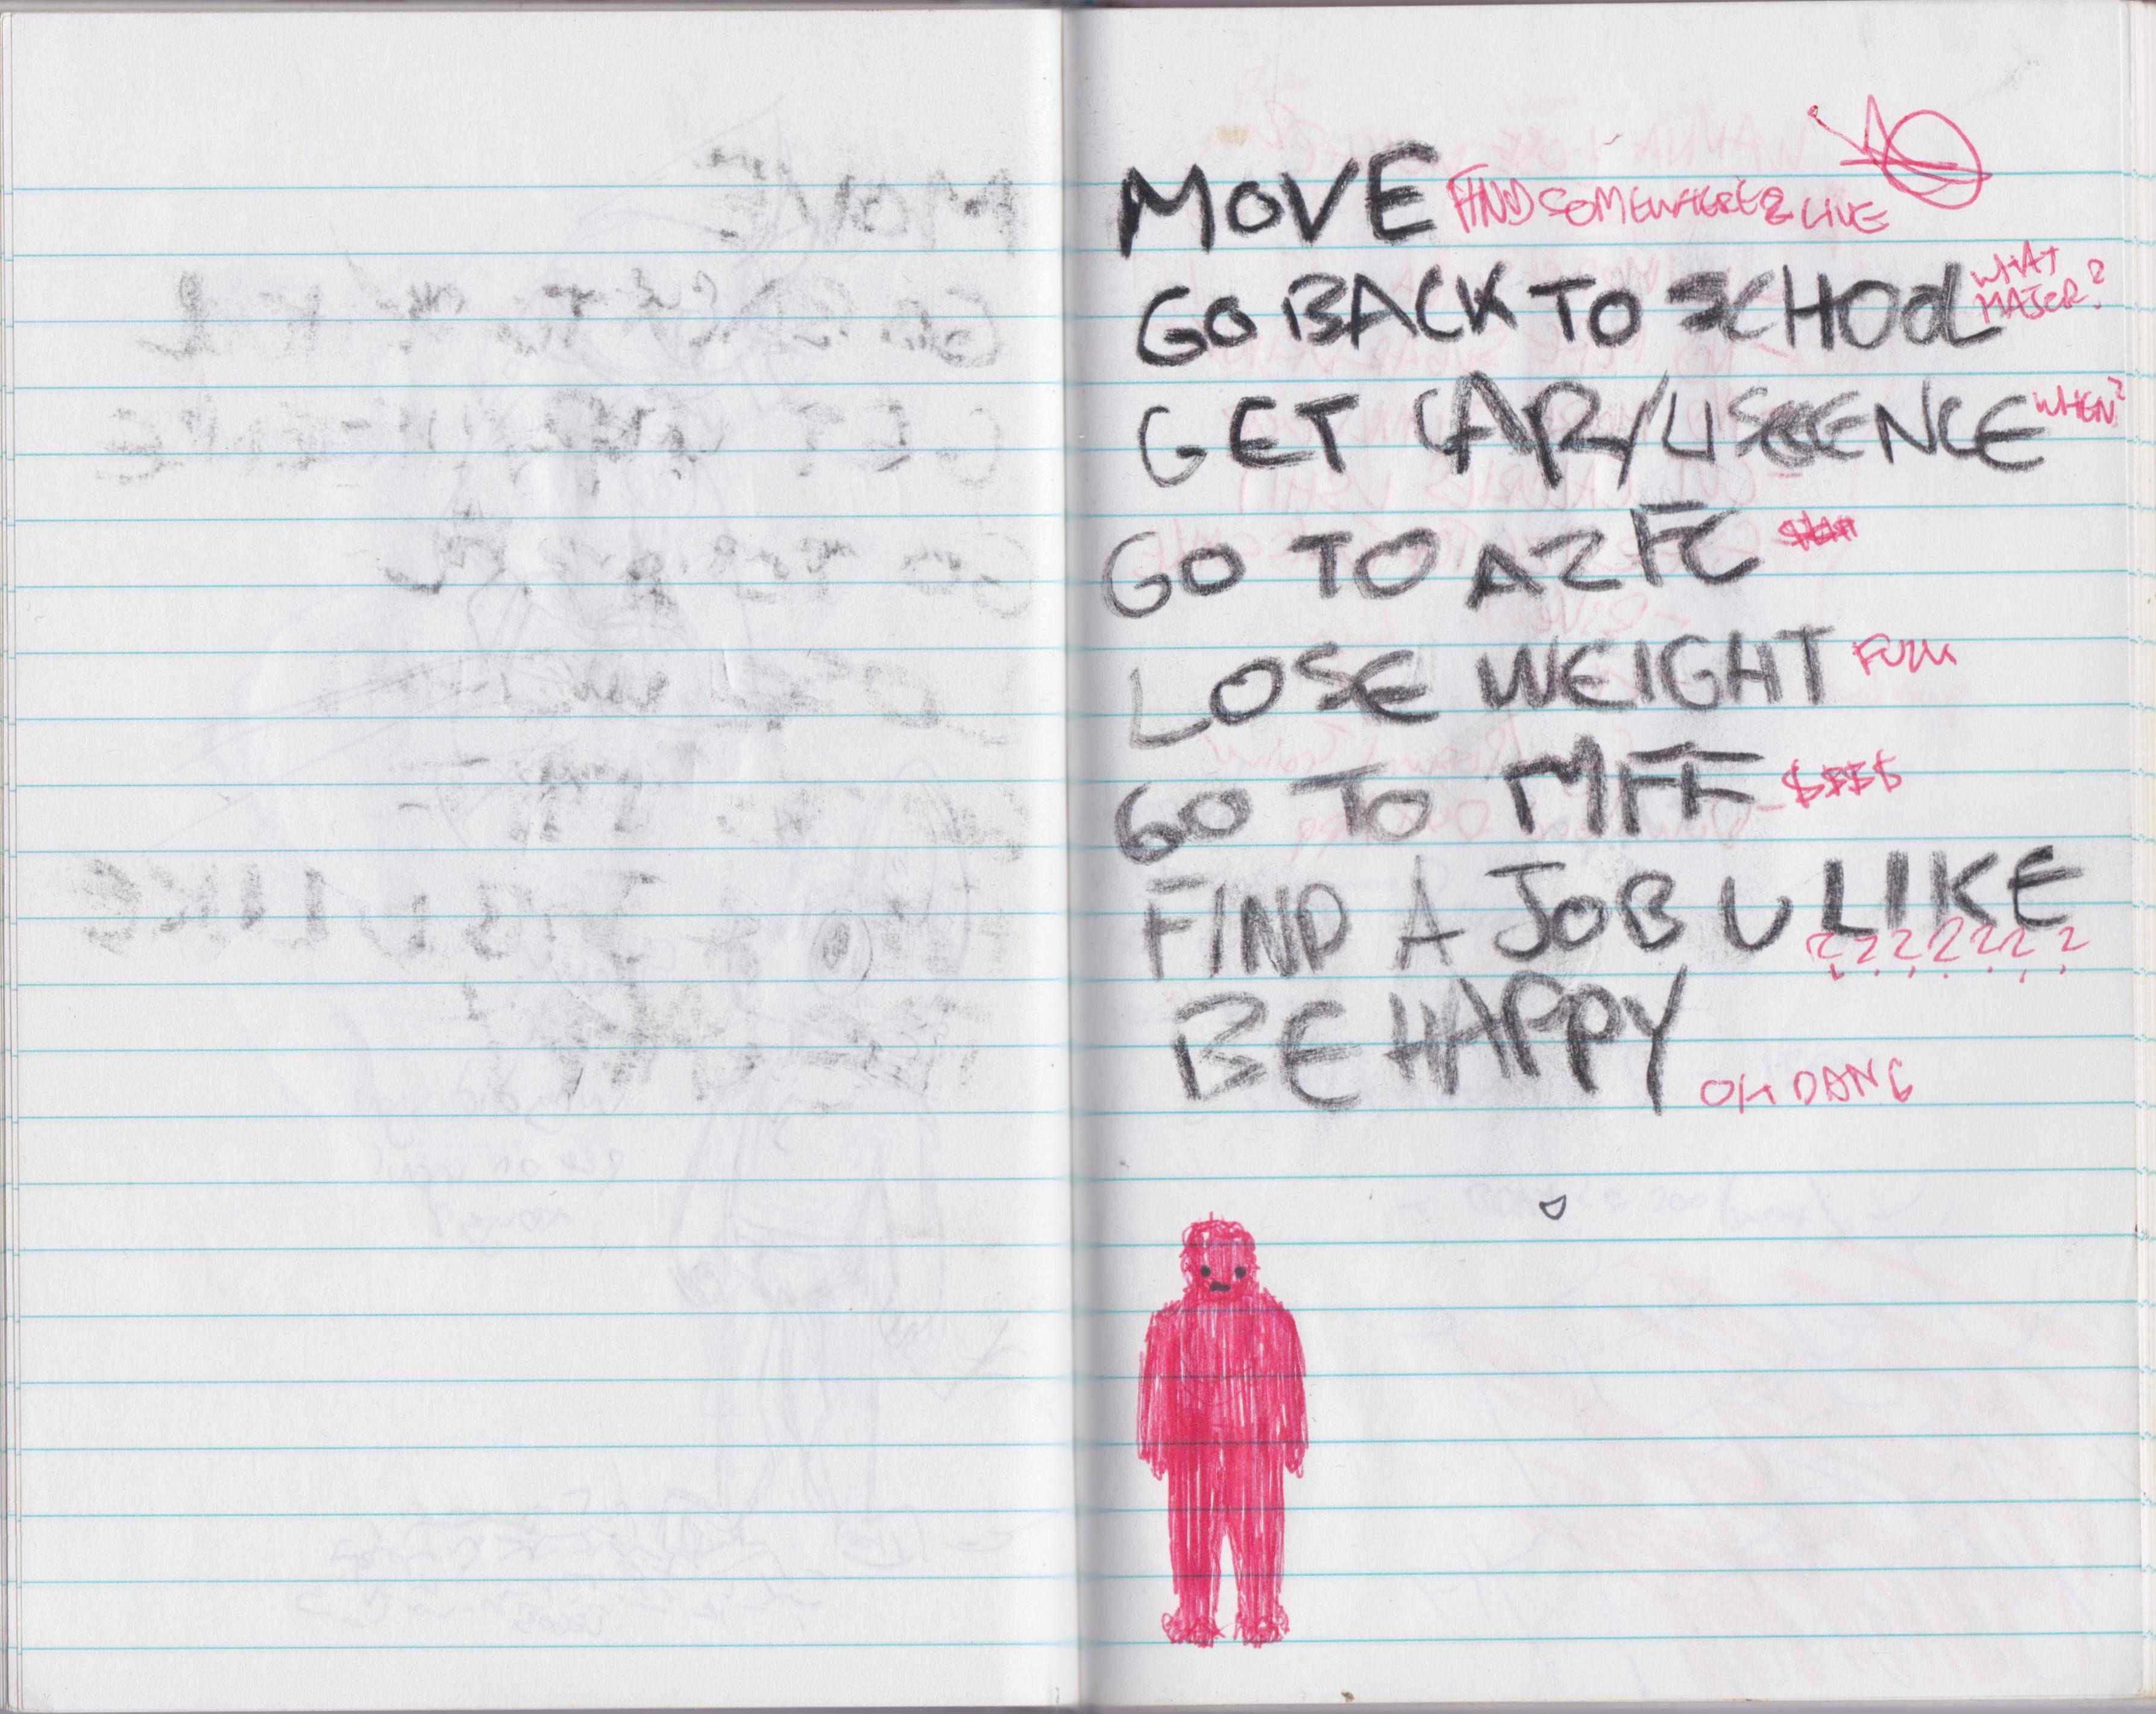 MOVE FIND SOMEWHERE 2 LIVE
GO BACK TO SCHOOL WHAT MAJOR?
GET CAR/LISCENCE WHEN?
GO TO AZFC
LOSE WEIGHT
GO TO MFF - $$$$
FIND A JOB U LIKE
???????
BE HAPPY
OH DANG